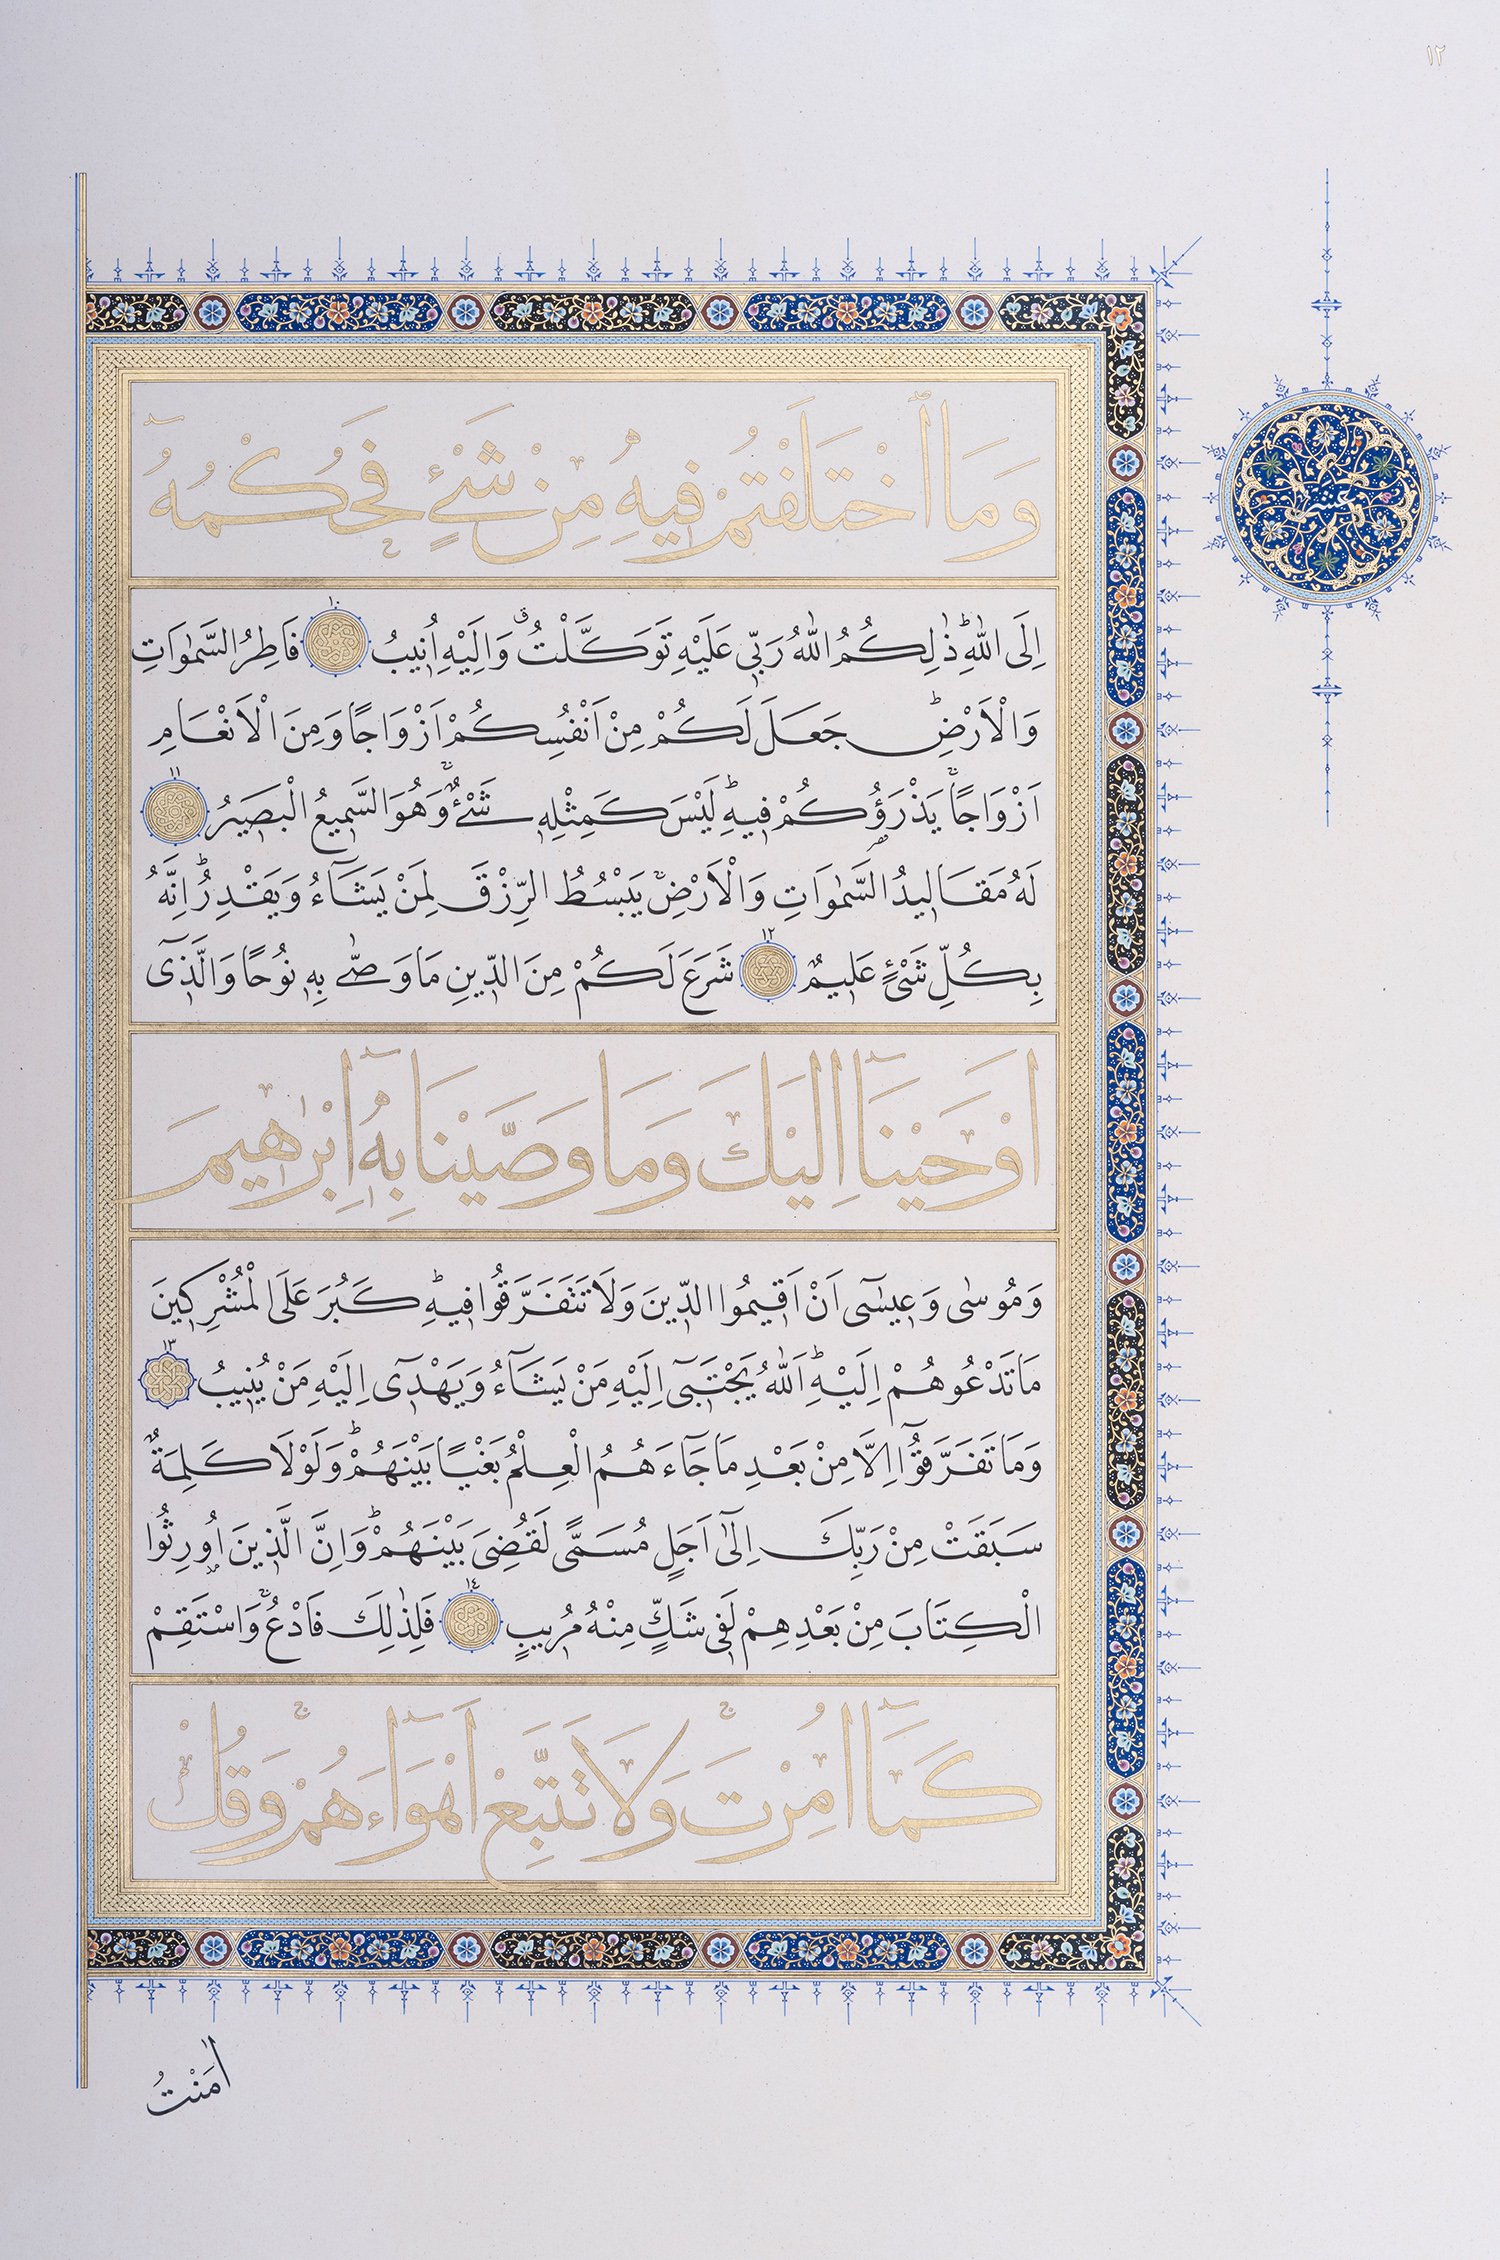 ١٢
وَمَا اخْتَلَفْتُمْ فِيهِ مِنْ شَيْءٍ فَحُكْمُهُٓ
اِلَى اللّٰهِ ذٰلِكُمُ اللّٰهُ رَبّٖي عَلَيْهِ تَوَكَّلْتُ وَاِلَيْهِ اُنٖيبُ ١٠ فَاطِرُ السَّمٰوَاتِ
وَالْاَرْضِ جَعَلَ لَكُمْ مِنْ اَنْفُسِكُمْ اَزْوَاجًا وَمِنَ الْاَنْعَامِ
اَزْوَاجًا يَذْرَؤُكُمْ فٖيهِ لَيْسَ كَمِثْلِهٖ شَيْءٌ وَهُوَ السَّمٖيعُ الْبَصٖيرُ ١١
لَهُ مَقَالٖيدُ السَّمٰوَاتِ وَالْاَرْضِ يَبْسُطُ الرِّزْقَ لِمَنْ يَشَٓاءُ وَيَقْدِرُ اِنَّهُ
بِكُلِّ شَيْءٍ عَلٖيمٌ ١٢ شَرَعَ لَكُمْ مِنَ الدّٖينِ مَا وَصّٰى بِهٖ نُوحًا وَالَّذٖٓي
اَوْحَيْنَٓا اِلَيْكَ وَمَا وَصَّيْنَا بِهٖٓ اِبْرٰهٖيمَ
وَمُوسٰى وَعٖيسٰٓى اَنْ اَقٖيمُوا الدّٖينَ وَلَا تَتَفَرَّقُوا فٖيهِ كَبُرَ عَلَى الْمُشْرِكٖينَ
مَا تَدْعُوهُمْ اِلَيْهِ اَللّٰهُ يَجْتَبٖٓي اِلَيْهِ مَنْ يَشَٓاءُ وَيَهْدٖٓي اِلَيْهِ مَنْ يُنٖيبُ ١٣
وَمَا تَفَرَّقُٓوا اِلَّا مِنْ بَعْدِ مَا جَٓاءَهُمُ الْعِلْمُ بَغْيًا بَيْنَهُمْ وَلَوْلَا كَلِمَةٌ
سَبَقَتْ مِنْ رَبِّكَ اِلٰٓى اَجَلٍ مُسَمًّى لَقُضِيَ بَيْنَهُمْ وَاِنَّ الَّذٖينَ اُورِثُوا
الْكِتَابَ مِنْ بَعْدِهِمْ لَفٖي شَكٍّ مِنْهُ مُرٖيبٍ ١٤ فَلِذٰلِكَ فَادْعُ وَاسْتَقِمْ
كَمَٓا اُمِرْتَ وَلَا تَتَّبِعْ اَهْوَٓاءَهُمْ وَقُلْ
اٰمَنْتُ